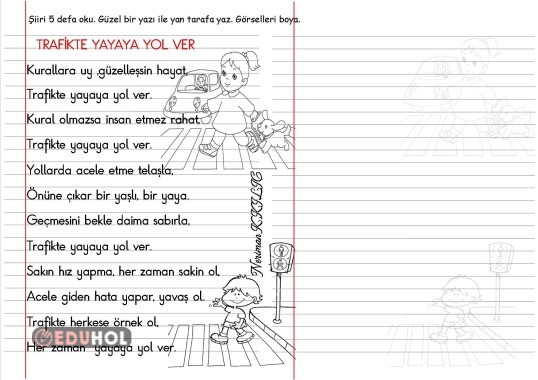 Şiiri 5 defa oku. Güzel bir yazı ile yan tarafa yaz. Görselleri boya.
TRAFİKTE YAYAYA YOL VER
Kurallara uy ,güzelleşsin hayat,
Trafikte yayaya yol ver.
Kural olmazsa insan etmez rahat,
Trafikte yayaya yol ver.
Yollarda acele etme telaşla,
Önüne çıkar bir yaşlı, bir yaya.
Geçmesini bekle daima sabırla,
Trafikte yayaya yol ver.
Sakın hız yapma, her zaman sakin ol,
Acele giden hata yapar, yavaş ol,
Trafikte herkese örnek ol,
Her zaman yayaya yol ver.
Neriman
EDUHOL